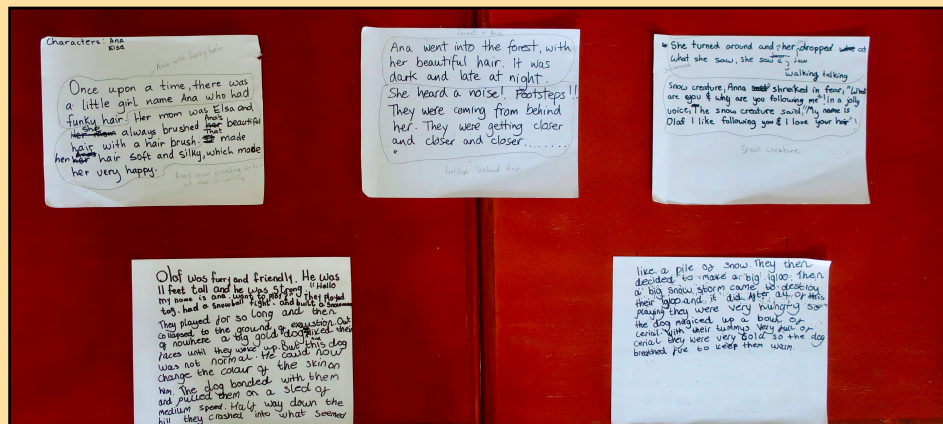 Characters: Ana
Elsa
Ana with funky hair
Once upon a time, there was
a little girl name Ana who had
funky hair. Her mom was Elsa and
She always brushed Ana's beautiful
hair with a hair brush. That made
her hair soft and silky, which made
her very happy.
Ana went into the forest, with
her beautiful hair. It was
dark and late at night.
She heard a noise! Footsteps!!
They were coming from behind
her. They were getting closer
and closer and closer.........
Footsteps behind
She turned around and her jaw dropped at
what she saw, she saw a
walking talking
Snow creature, Anna shreiked in fear, "What
are you & why are you following me"! In a jolly
voice, The snow creature said, "My name is
Olaf I like following you & I love your hair"!
Snow creature
Olaf was furry and friendly. He was
11 feet tall and he was strong. "Hallo
my name is ana. want to play?" They Played
tag. had a snowball fight. and built a
They played for so long and then
collapsed to the ground of exaustion. Out
of nowhere a big gold dog liked their
faces until they woke up. But this dog
was not normal. He could now
change the colour of the skin on
him. The dog bonded with them
and pulled them on a sled of
medium speed. Half way down the
hill they crashed into what seemed
like a pile of snow. They then
decided to make a big igloo. Then
a big snow storm came to destroy
their igloo and it did. After all of this
playing they were very hungry so
the dog magiced up a bowl of
cerial. With their tummys very full of
cerial they were very cold so the dog
breathed fire to keep them warm.